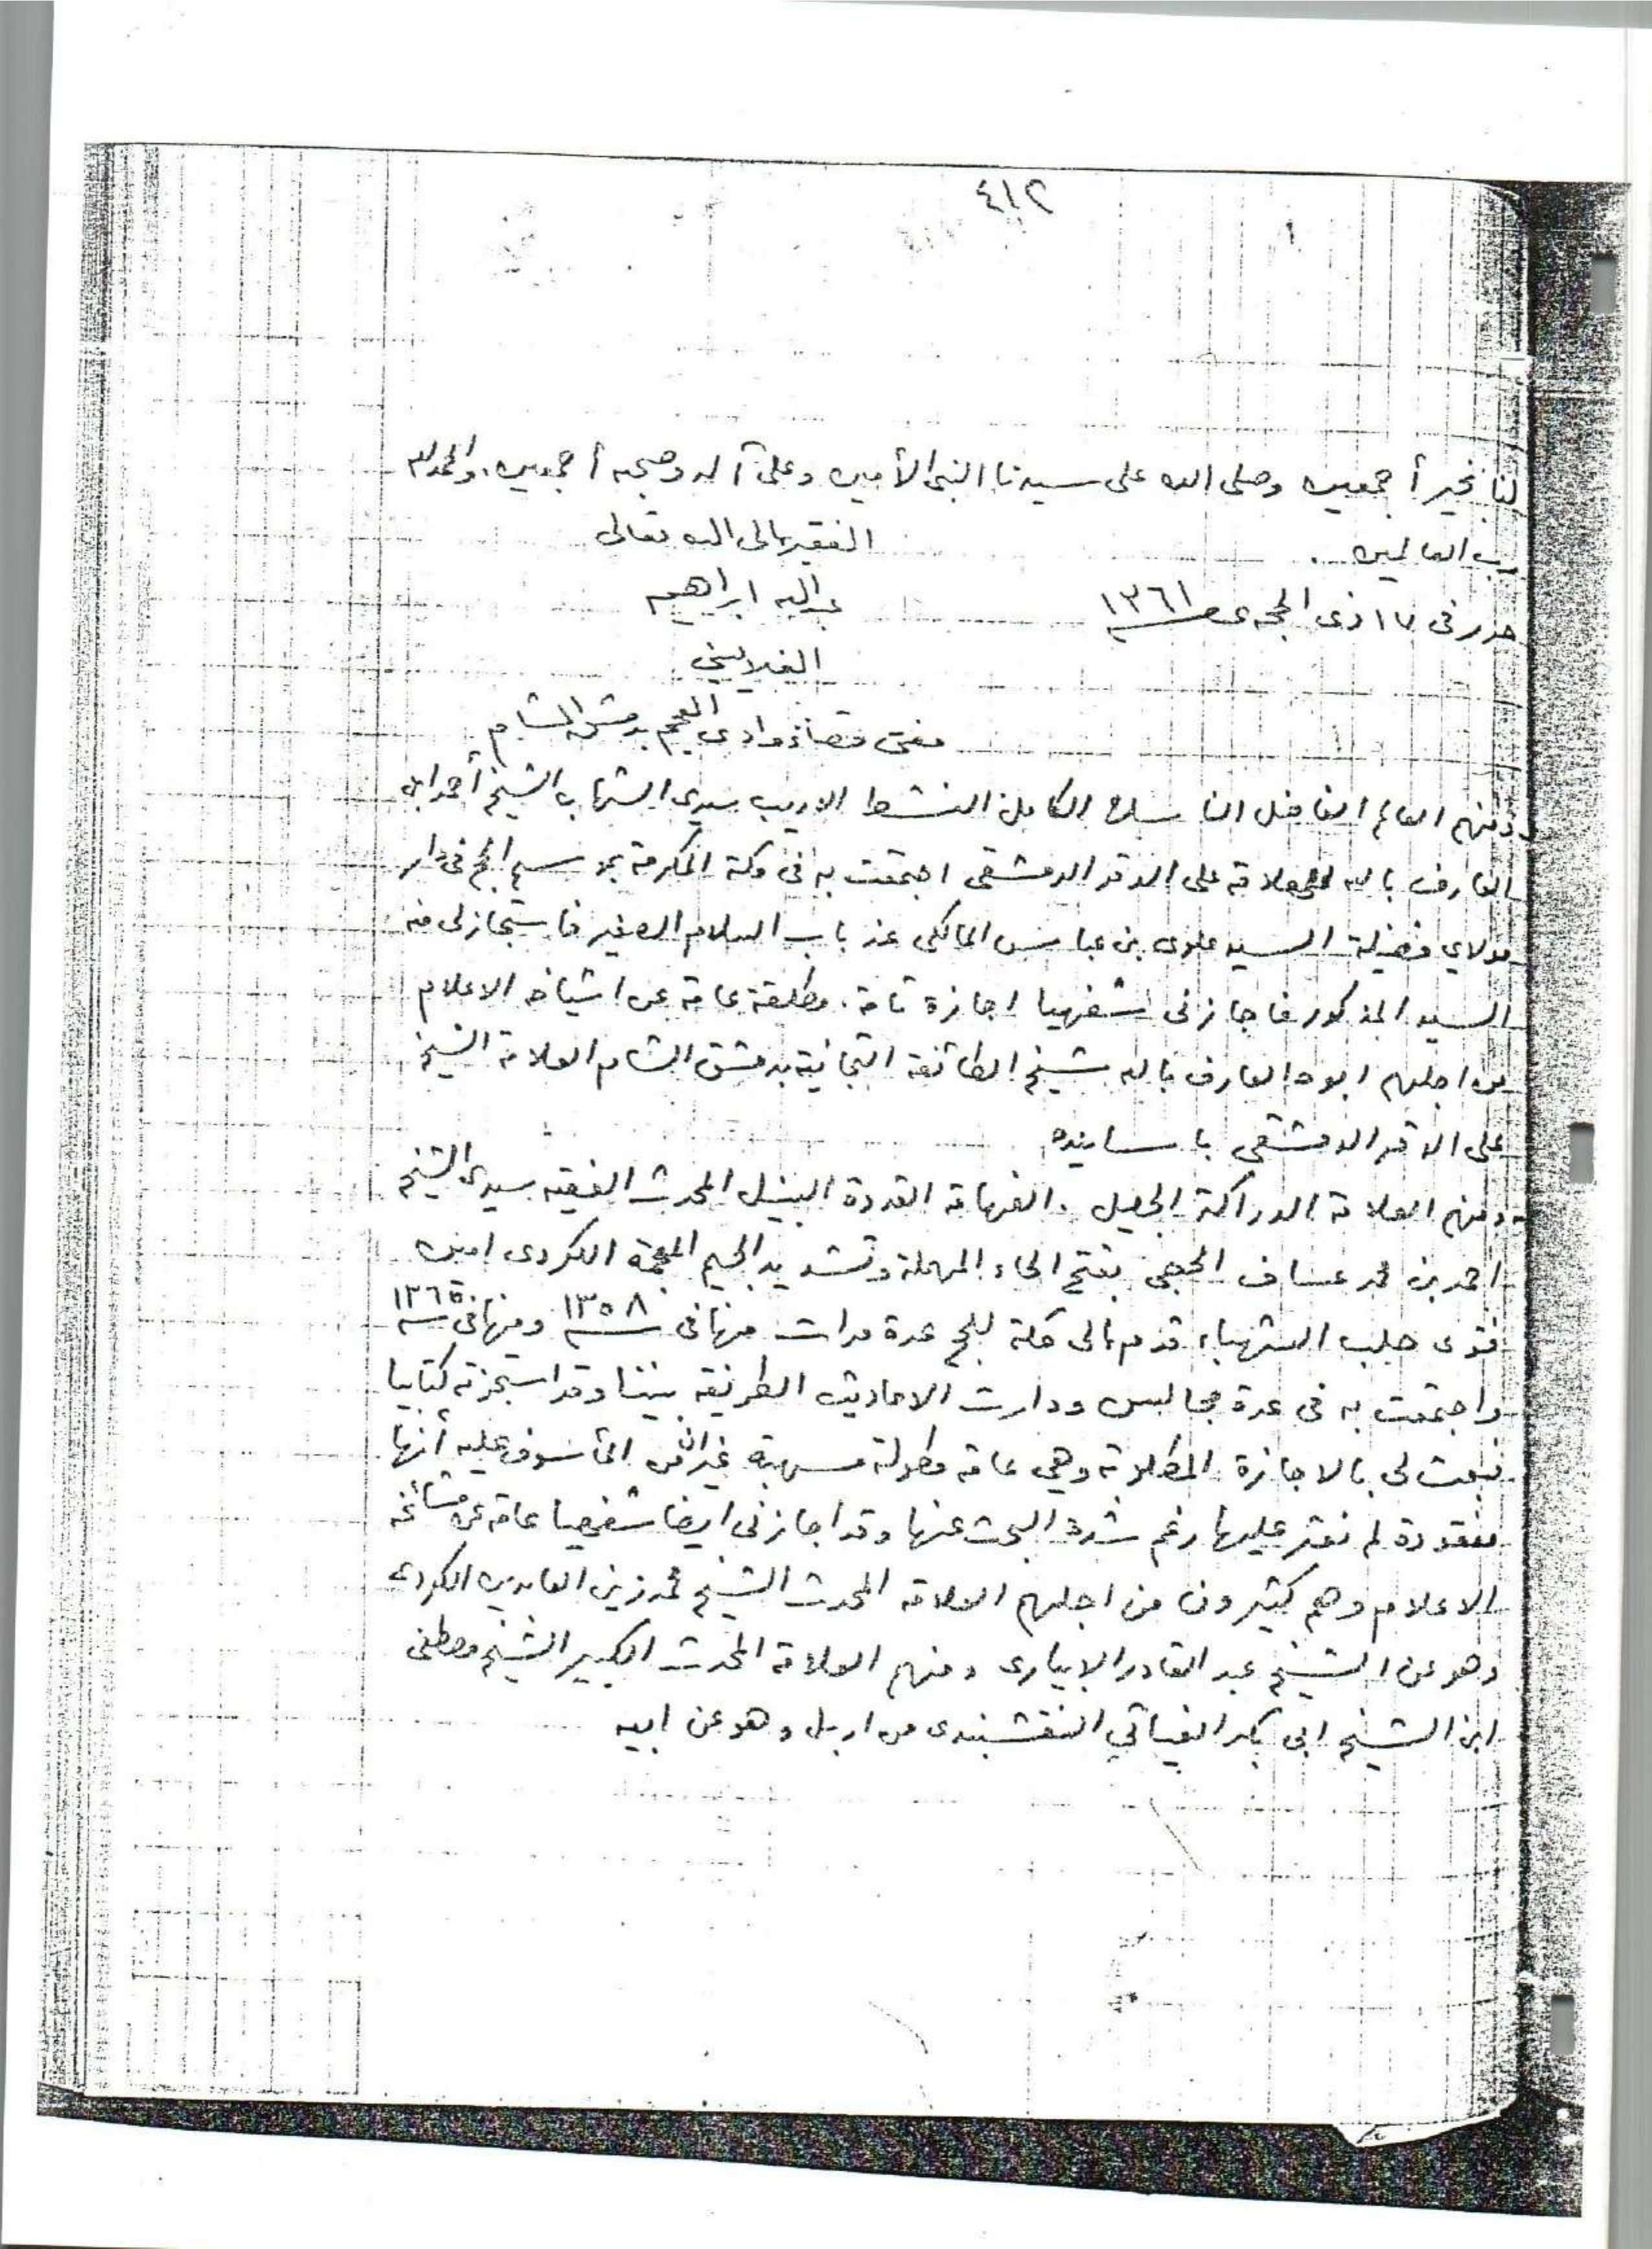 ٤١٢
لنا بخير أجمعين وصلى الله على سيدنا النبى الأمين وعلى آله وصحبه أجمعين. والحمد لله
رب العالمين .
الفقير إلى الله تعالى
حرر فى ١٧ ذى الحجة ١٣٦١
عبد الله ابراهيم
الغلايينى
مفتى قضاء وادى العجم بدمشق الشام
ومنهم العالم الفاضل الناسك الكامل النشط الاديب سيدى الشهاب الشيخ أحمد ابن
العارف بالله العلامة على الدقر الدمشقى اجتمعت به فى مكة المكرمة بموسم الحج فى دار
مولاي فضيلة السيد علوى بن عباس المالكى عند باب السلام الصغير فاستجاز لى منه
السيد المذكور فاجازنى شفهيا اجازة تامة . مطلقة عامة عن اشياخه الاعلام
من اجلهم ابوه العارف بالله شيخ الطائفة التجانية بدمشق الشام العلامة الشيخ
على الدقر الدمشقى باسانيده
ومنهم العلامة الدراكة الجليل . الفهامة القدوة النبيل المحدث الفقيه سيدى الشيخ
احمد بن محمد عساف الحجى بفتح الحاء المهملة وتشديد الجيم المعجمة الكردى امين
فتوى حلب الشهباء قدم الى مكة للحج عدة مرات منها فى ١٣٥٨ ومنها فى ١٣٦٥
واجتمعت به فى عدة مجالس ودارت الاحاديث الظريفة بيننا وقد استجزته كتابيا
فبعث لى بالاجازة المطلوبة وهى عامة مطولة مسهبة غير أن من المأسوف عليه أنها
مفقودة لم نعثر عليها رغم شدة البحث عنها وقد اجازنى ايضا شفهيا عامة عن مشائخه
الاعلام وهم كثيرون من اجلهم العلامة المحدث الشيخ محمد زين العابدين الكردى
وهو عن الشيخ عبد القادر الابيارى ومنهم العلامة المحدث الكبير الشيخ مصطفى
ابن الشيخ ابى بكر النقشبندى من اربل وهو عن ابيه